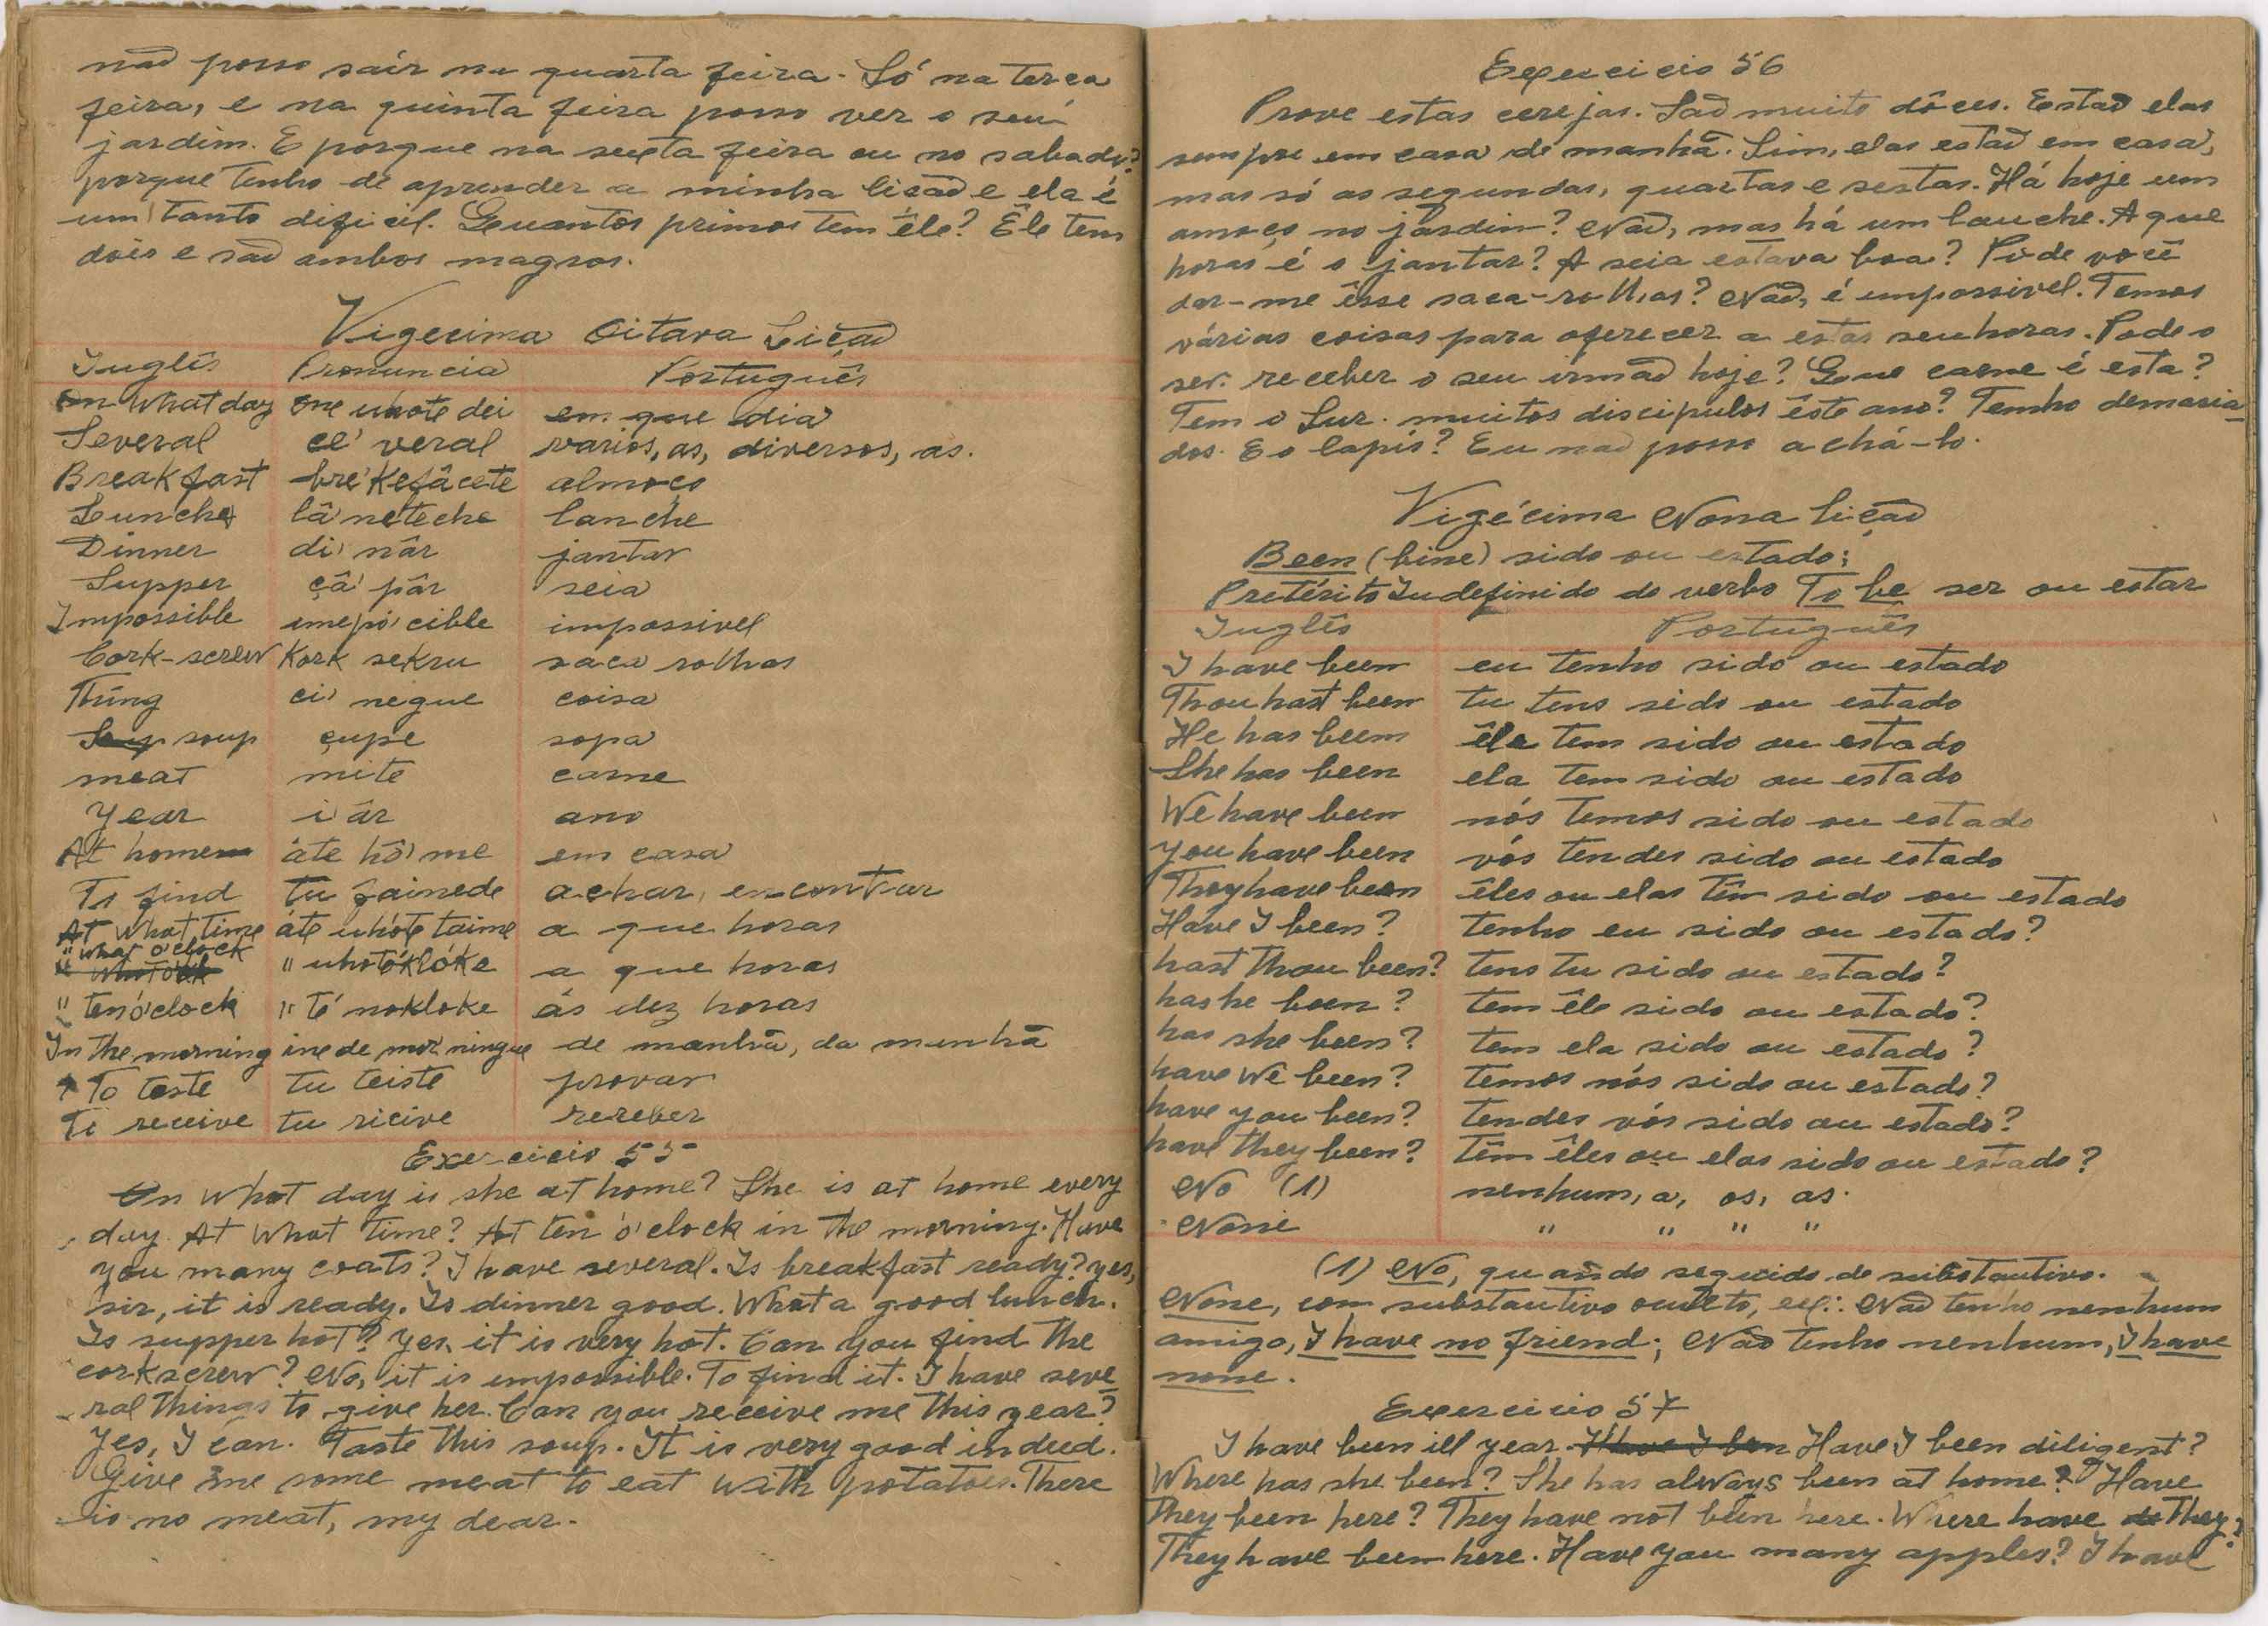 não posso saír na quarta feira. Só na terça
feira, e na quinta feira posso ver o seu
jardim. E porque na sexta feira ou no sabado?
porque tenho de aprender a minha lição e ela é
um tanto dificil. Quantos primos tem êle? Êle tem
dois e são ambos magros.
Vigecima Oitava Lição
Inglês Pronuncia Português
On What day one uhote dei em que dia
Several cé veral varios, as, diversos, as.
Breakfast bre'kefâcete almoço
Lunche lâ neteche lanche
Dinner di' nâr jantar
Supper çâ' pâr seia
Impossible imepó' cible impossivel
Cork-screw Kork sekru saca rolhas
Thing ci' negue coisa
soup çupe sopa
meat mite carne
year i âr ano
At home áte hô'me em casa
To find tu fainede achar, encontrar
At What time áte uhóte taime a que horas
" What o'clock " uhotóklóke a que horas
" ten o'clock " té nokloke ás dez horas
In the morning ine de mor ningue de manhã, da manhã
To teste tu teiste provar
To receive tu ricive receber
Exercicio 55
On What day is she at home? She is at home every
day. At What time? At ten o'clock in the morning. Have
you many coats? I have several. Is breakfast ready? yes,
sir, it is ready. Is dinner good. What a good lunch.
Is supper hot? Yes, it is very hot. Can you find the
corkscrew? No, it is impossible. To find it. I have seve
ral things to give her. Can you receive me this year?
Yes, I can. Taste this soup. It is very good indeed.
Give me some meat to eat with potatoes. There
is no meat, my dear.
Exercicio 56
Prove estas cerejas. São muito dôces. Estão elas
sempre em casa de manhã. Sim, elas estão em casa,
mas só as segundas, quartas e sestas. Há hoje um
amoço no jardin? Não, mas há um lanche. A que
horas é o jantar? A seia estava boa? Póde você
dar-me êsse saca-rolhas? Não, é impossivel. Temos
várias coisas para oferecer a estas senhoras. Pode o
ser. receber o seu irmão hoje? Que carne é esta?
Tem o Snr. muitos discipulos êste ano? Tenho demasia
dos. E o lapis? Eu não posso achá-lo.
Vigécima Nona Lição
Been (bine) sido ou estado;
Pretérito Indefinido do verbo To be ser ou estar
Inglês Português
I have been eu tenho sido ou estado
Thou hast been tu tens sido ou estado
He has been êle tem sido ou estado
She has been ela tem sido ou estado
We have been nós temos sido ou estado
you have been vós tendes sido ou estado
They have been êles ou elas têm sido ou estado
Have I been? tenho eu sido ou estado?
hast thou been? tens tu sido ou estado?
has he been? tem êle sido ou estado?
has she been? tem ela sido ou estado?
have We been? temos nós sido ou estado?
have you been? tendes vós sido ou estado?
have they been? têm êles ou elas sido ou estado?
No (1) nenhum, a, os, as.
None " " " "
(1) No, quando seguido de substantivo.
None, com substantivo oculto, ex: Não tenho nenhum
amigo, I have no friend; Não tenho nenhum, I have
none.
Exercicio 57
I have been ill year. Have I been diligent?
Where has she been? She has always been at home? Have
they been here? They have not been here. Where have they?
They have been here. Have you many apples? I have